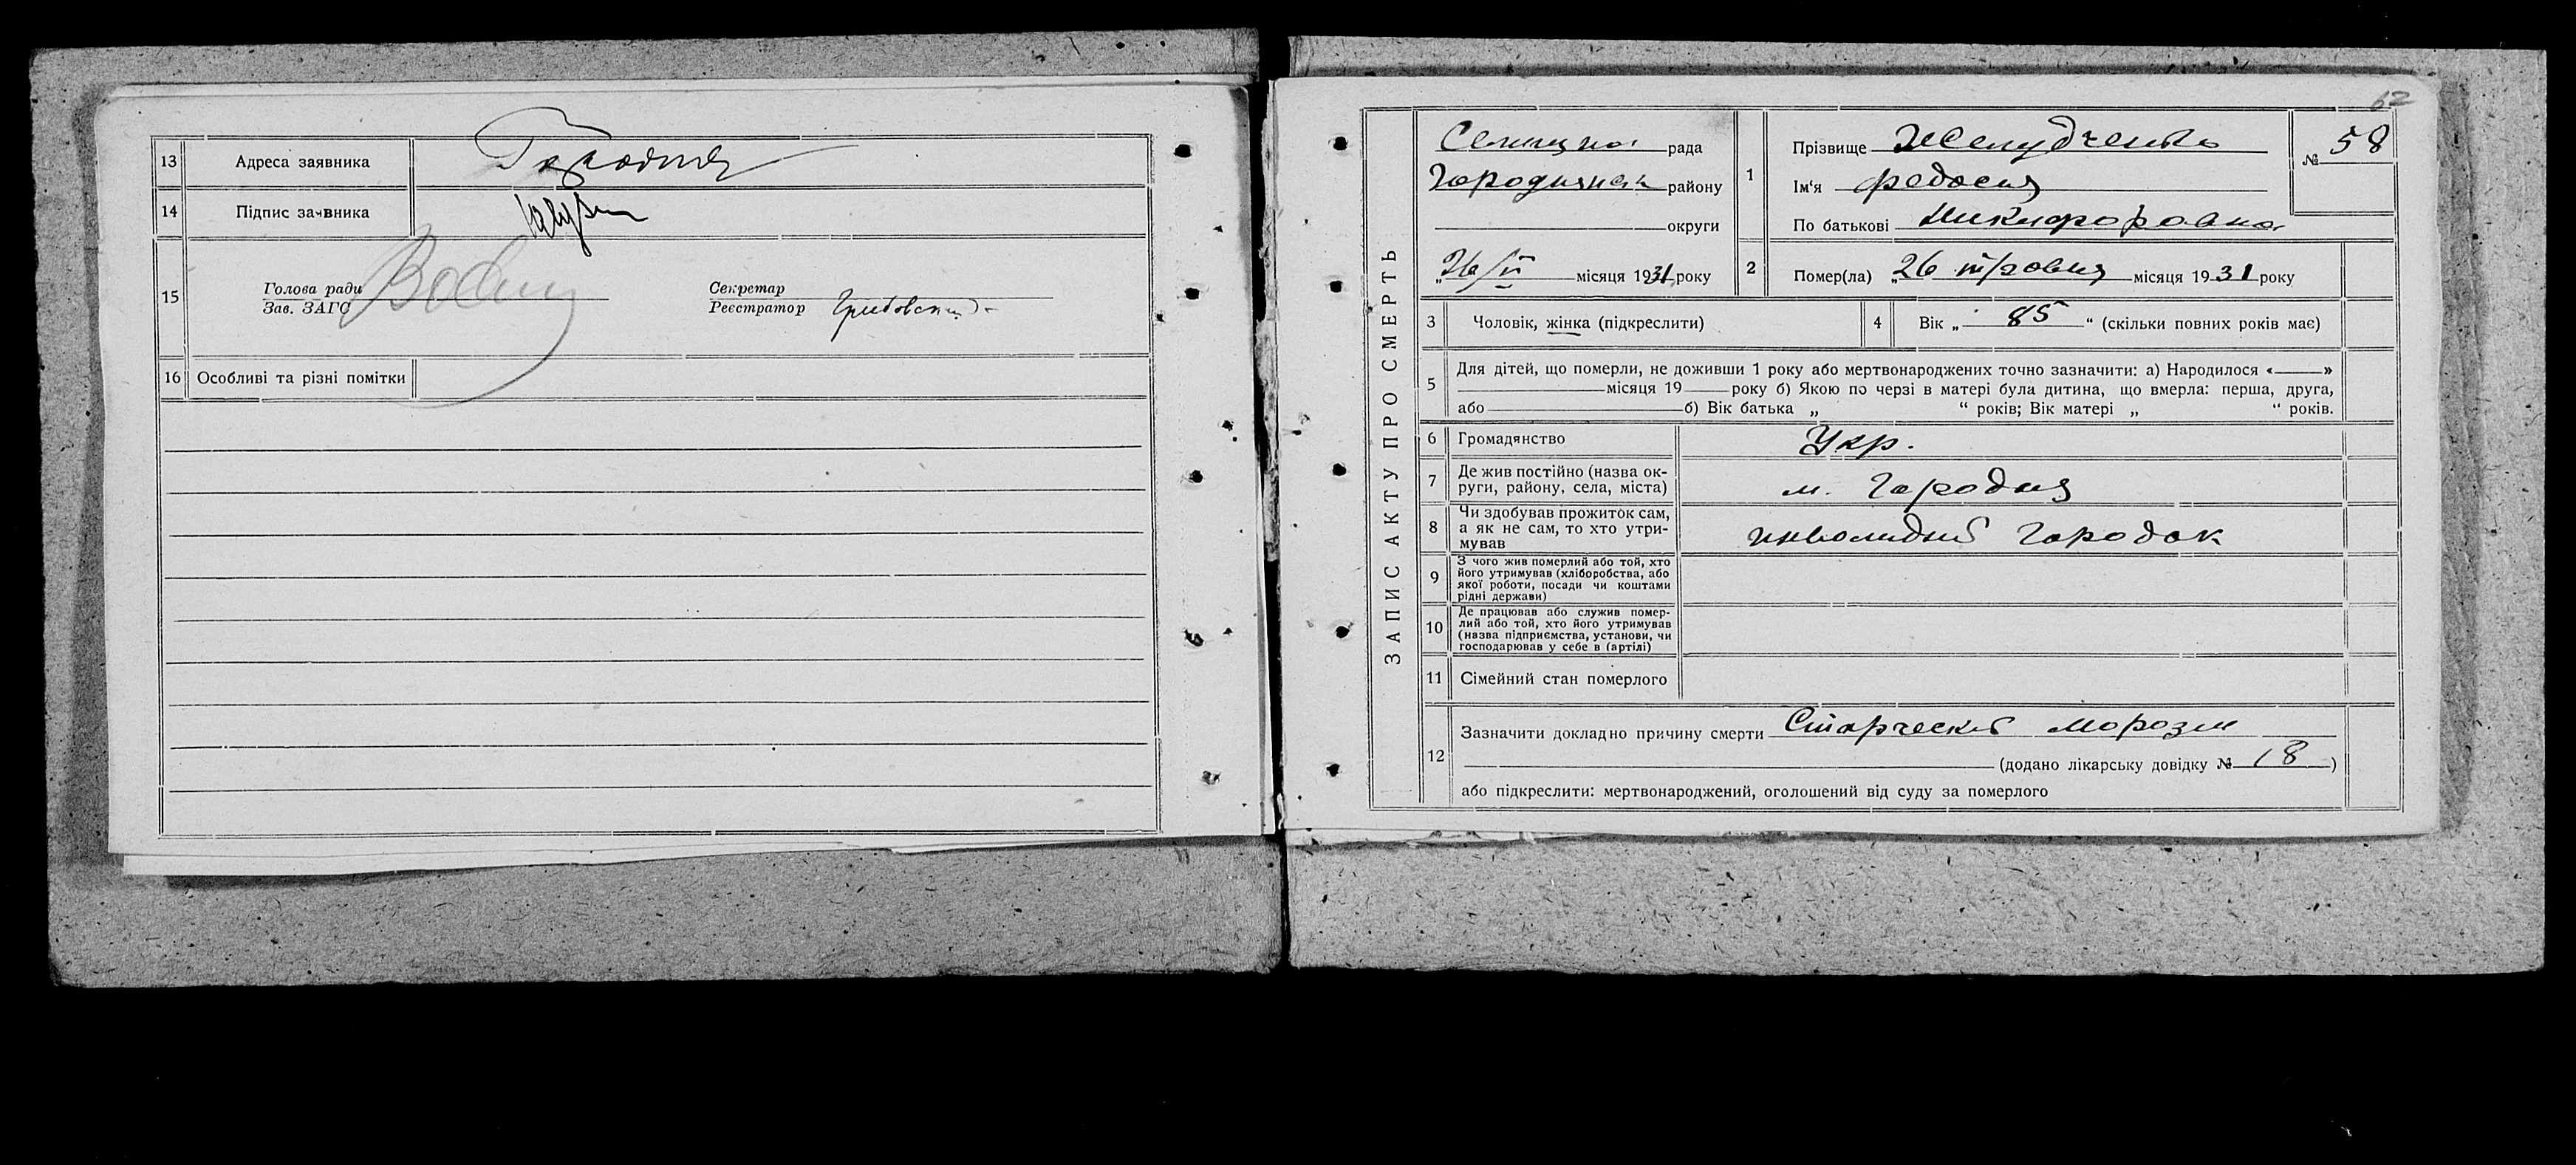 13 Адреса заявника Городня
14 Підпис заявника
15 Голова ради
Зав. ЗАГС
Секретар
Реєстратор Грибовский
16 Особливі та різні помітки
62
ЗАПИС АКТУ ПРО СМЕРТЬ
рада
району
округи
„26/V місяця 1931 року
№ 58
1 Прізвище Желудченко
Ім‘я Федосия
По батькові Никифоровна
2 Помер(ла) „26 травня місяця 1931 року
3 Чоловік, жінка (підкреслити)
4 Вік „ 85 “ (скільки повних років має)
5 Для дітей, що померли, не доживши 1 року або мертвонароджених точно зазначити: а) Народилося «——»
місяця 19 року б) Якою по черзі в матері була дитина, що вмерла: перша, друга,
або б) Вік батька „ “ років; Вік матері „ “ років.
6 Громадянство Укр.
7 Де жив постійно (назва ок-
руги, району, села, міста) м. Городня
8 Чи здобував прожиток сам,
а як не сам, то хто утри-
мував инвалидный городок
9 З чого жив померлий або той, хто
його утримував (хліборобства, або
якої роботи, посади чи коштами
рідні держави)
10 Де працював або служив помер-
лий або той, хто його утримував
(назва підприємства, установи, чи
господарював у себе в (артілі)
11 Сімейний стан померлого
12 Зазначити докладно причину смерти Старческий морозм
(додано лікарську довідку № 18)
або підкреслити: мертвонароджений, оголошений від суду за померлого